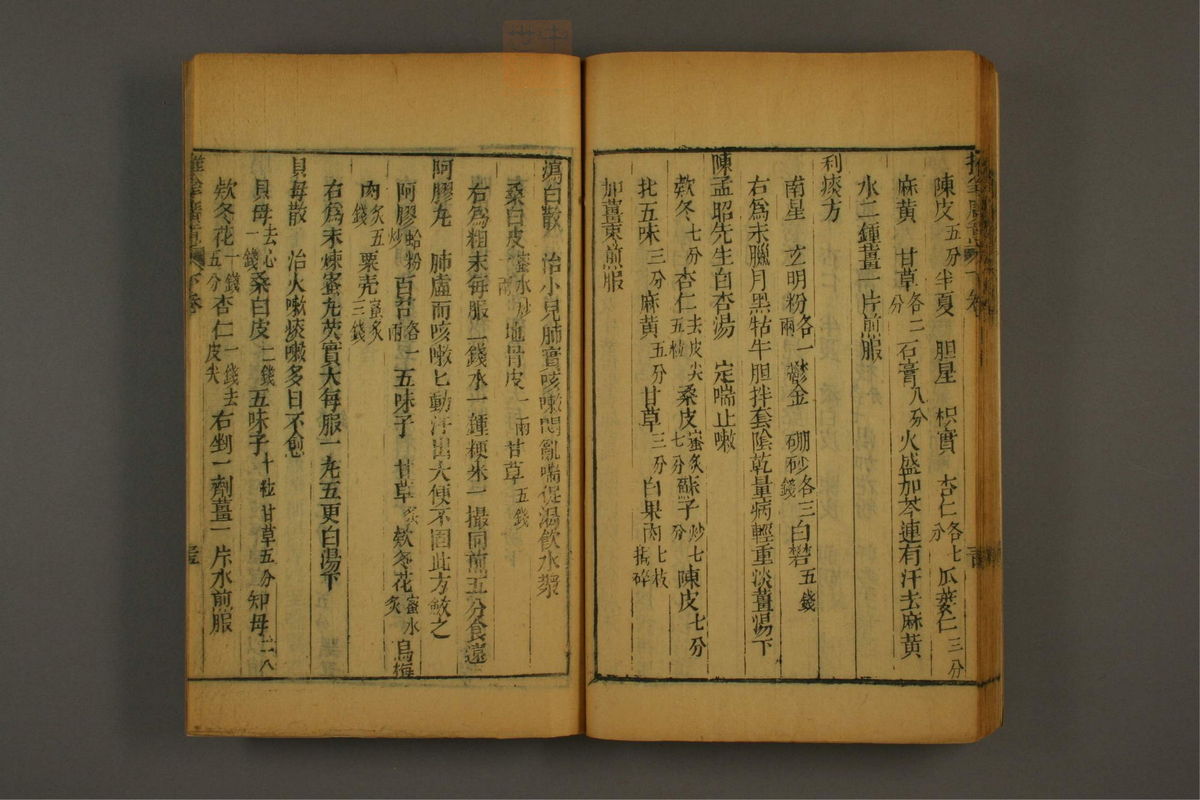 陳皮五分半夏　胆星　枳實　杏仁各七分瓜蔞仁三分
麻黄　甘草各二分石膏八分火盛加芩連有汗去麻黄
水二鍾薑一片煎服
利痰方
南星　玄明粉各一兩鬱金　硼砂各三錢白礬五錢
右為末臘月黑牯牛胆拌套陰乾量病輕重淡薑湯下
陳孟昭先生白杏湯　定喘止嗽
欵冬七分杏仁去皮尖五粒桑皮蜜炙七分蘇子炒七分陳皮七分
北五味三分麻黄五分甘草三分白果肉七枝搗碎
加薑棗煎服
瀉白散　治小兒肺實咳嗽悶亂喘促渴飲水漿
桑白皮蜜水炒一兩地骨皮一兩甘草五錢
右為粗末每服一錢水一鍾粳米一撮同煎五分食遠
阿膠丸　肺虛而咳嗽匕動汗出大便不固此方斂之
阿膠蛤粉炒百苔各一兩五味子　甘草炙欵冬花蜜水炙烏梅
肉炙五錢粟壳蜜炙三錢
右為末煉蜜丸芡實大每服一丸五更白湯下
貝母散　治火嗽痰嗽多日不愈
貝母去心一錢桑白皮二錢五味子十粒甘草五分知母二八
欵冬花一錢五分杏仁一錢去皮尖右剉一劑薑二片水煎服